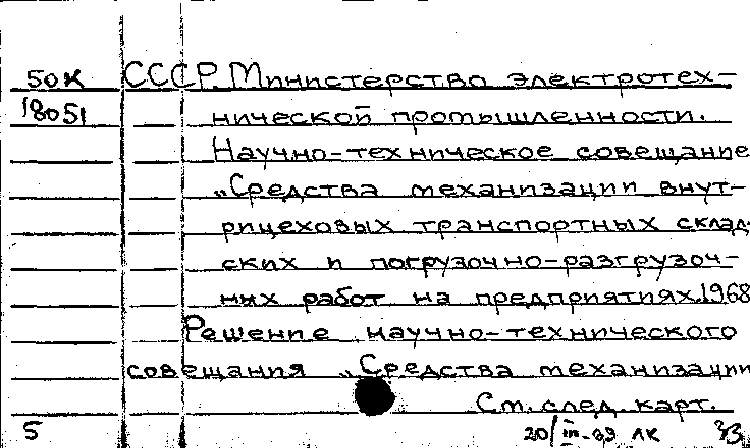 50К СССР. Министерство электротех-
18051 нической промышленности.
Научно-техническое совещание
„Средства механизации внут-
рицеховых транспортных склад-
ских и погрузочно-разгрузоч-
ных работ на предприятиях. 1968
Решение научно-технического
совещания „Средства механизации
См. след. карт.
5 20/III-69 ЛК